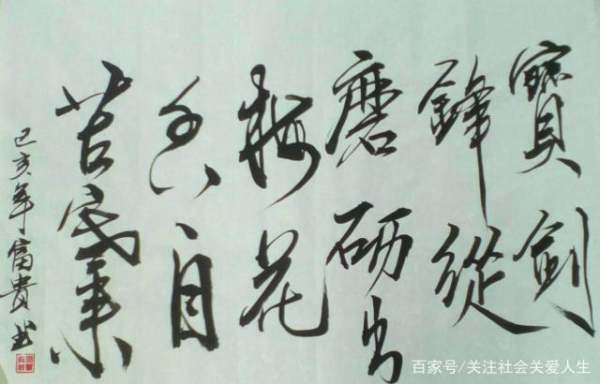 寶劍
鋒從
磨砺出
梅花
香自
苦寒來
己亥年富貴书
百家号/关注社会关爱人生